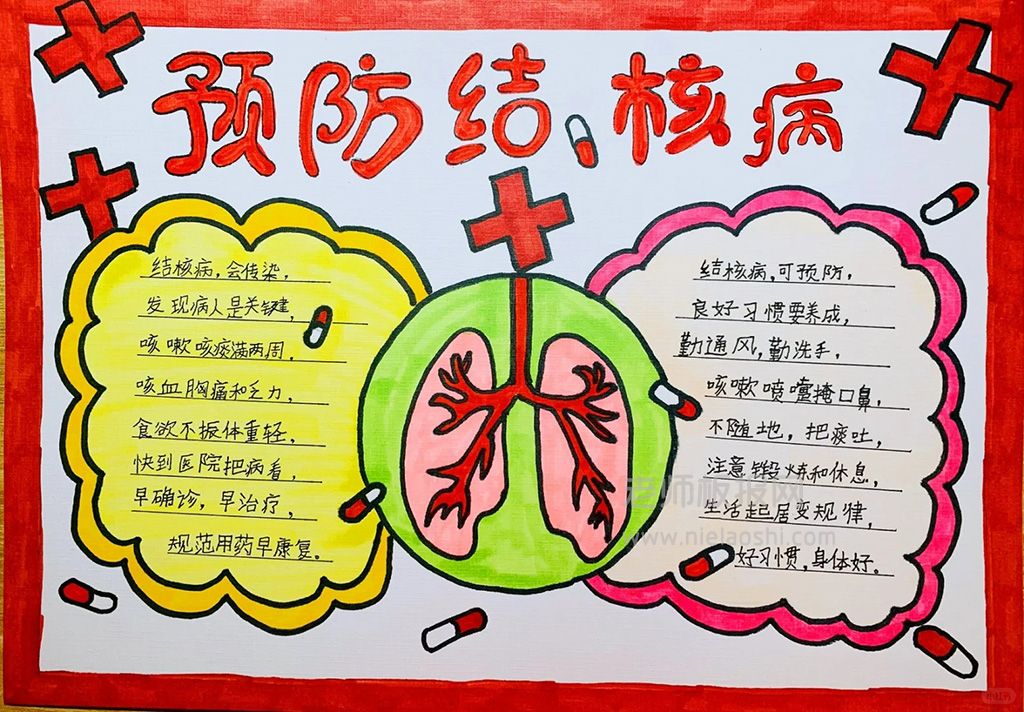 预防结核病
结核病,会传染,
发现病人是关键,
咳嗽咳痰满两周,
咳血胸痛和乏力,
食欲不振体重轻,
快到医院把病看,
早确诊,早治疗,
规范用药早康复。
结核病,可预防,
良好习惯要养成,
勤通风,勤洗手,
咳嗽喷嚏掩口鼻,
不随地,把痰吐,
注意锻炼和休息,
生活起居变规律,
好习惯,身体好。
老师板报网
www.nielaoshi.com
小红书